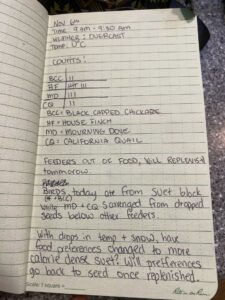 Nov 6th
TIME: 9am - 9:30 AM
WEATHER: OVERCAST
TEMP: 0°C
COUNTS:
BCC | ||
HF | |||| |||
MD | |||
CQ | ||
BCC = BLACK CAPPED CHICKADEE
HF = HOUSE FINCH
MD = MOURNING DOVE
CQ = CALIFORNIA QUAIL
FEEDERS OUT OF FOOD, WILL REPLENISH
tommorow.
BIRDS today ate from suet block
(HF + BCC)
while MD + CQ scavenged from dropped
seeds below other feeders.
With drops in temp + snow, have
food preferences changed to more
calorie dense suet? Will preferences
go back to seed once replenished.
Scale: 1 square =